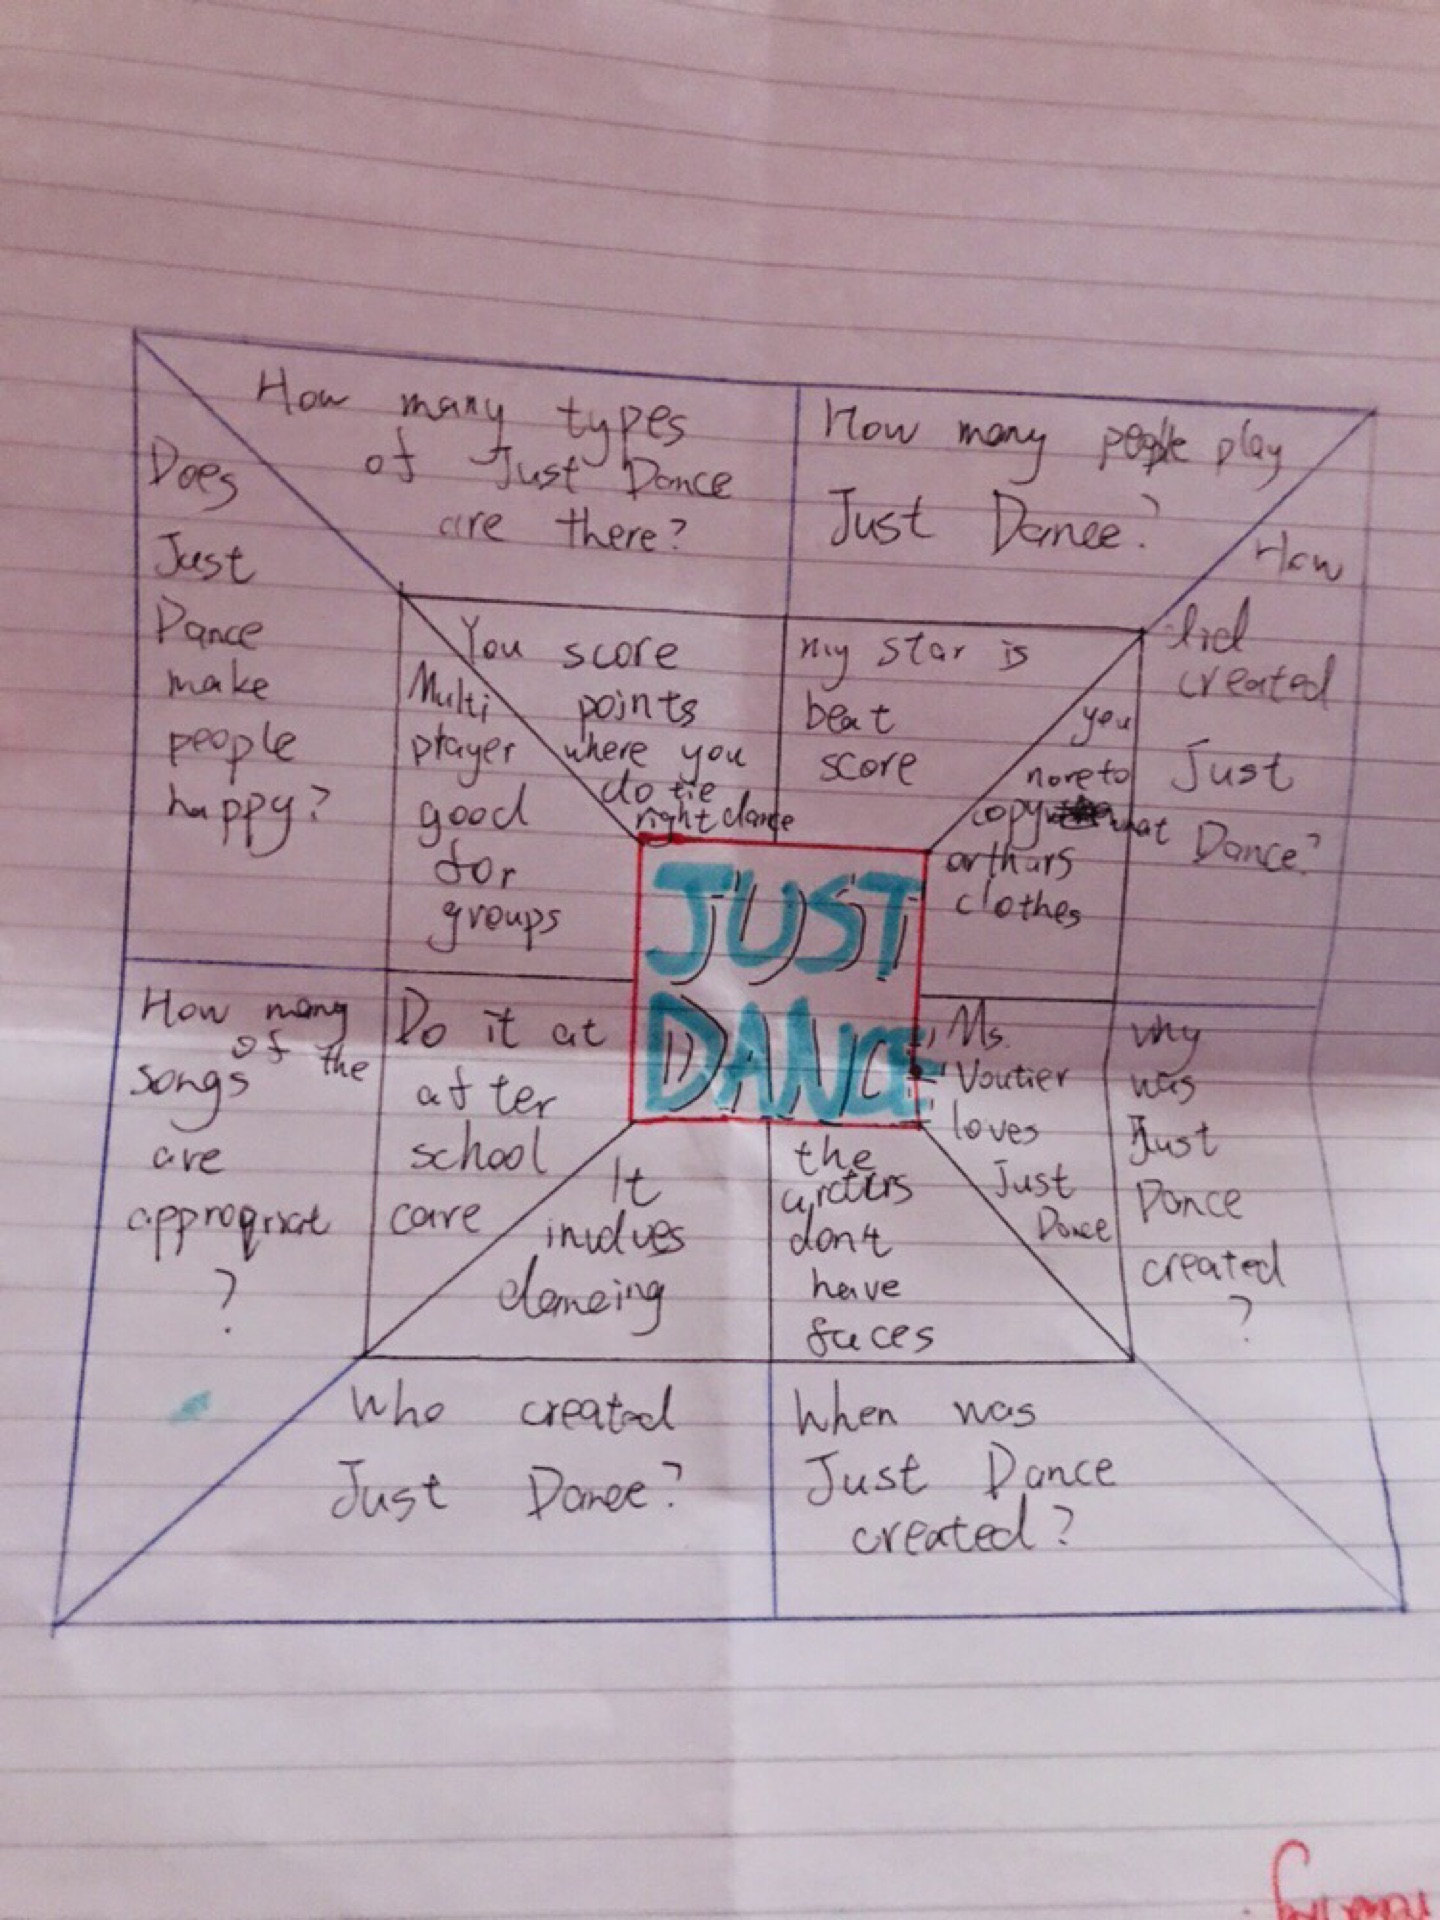 How many types
of Just Dance
are there?
How many people play
Just Dance?
Does
Just
Dance
make
people
happy?
You score
points
where you
do
right dance
my star is
beat
score
Multi
player
good
for
groups
you
to
copy what
arthurs
clothes
How
did
created
Just
Dance?
JUST
DANCE
How many
of the
songs
are
appropriat
?
Do it at
after
school
care
It
involves
danceing
the
don't
have
faces
Ms.
Voutier
loves
Just
Dance
why
was
Just
Dance
created
?
Who created
Just Dance?
When was
Just Dance
created?